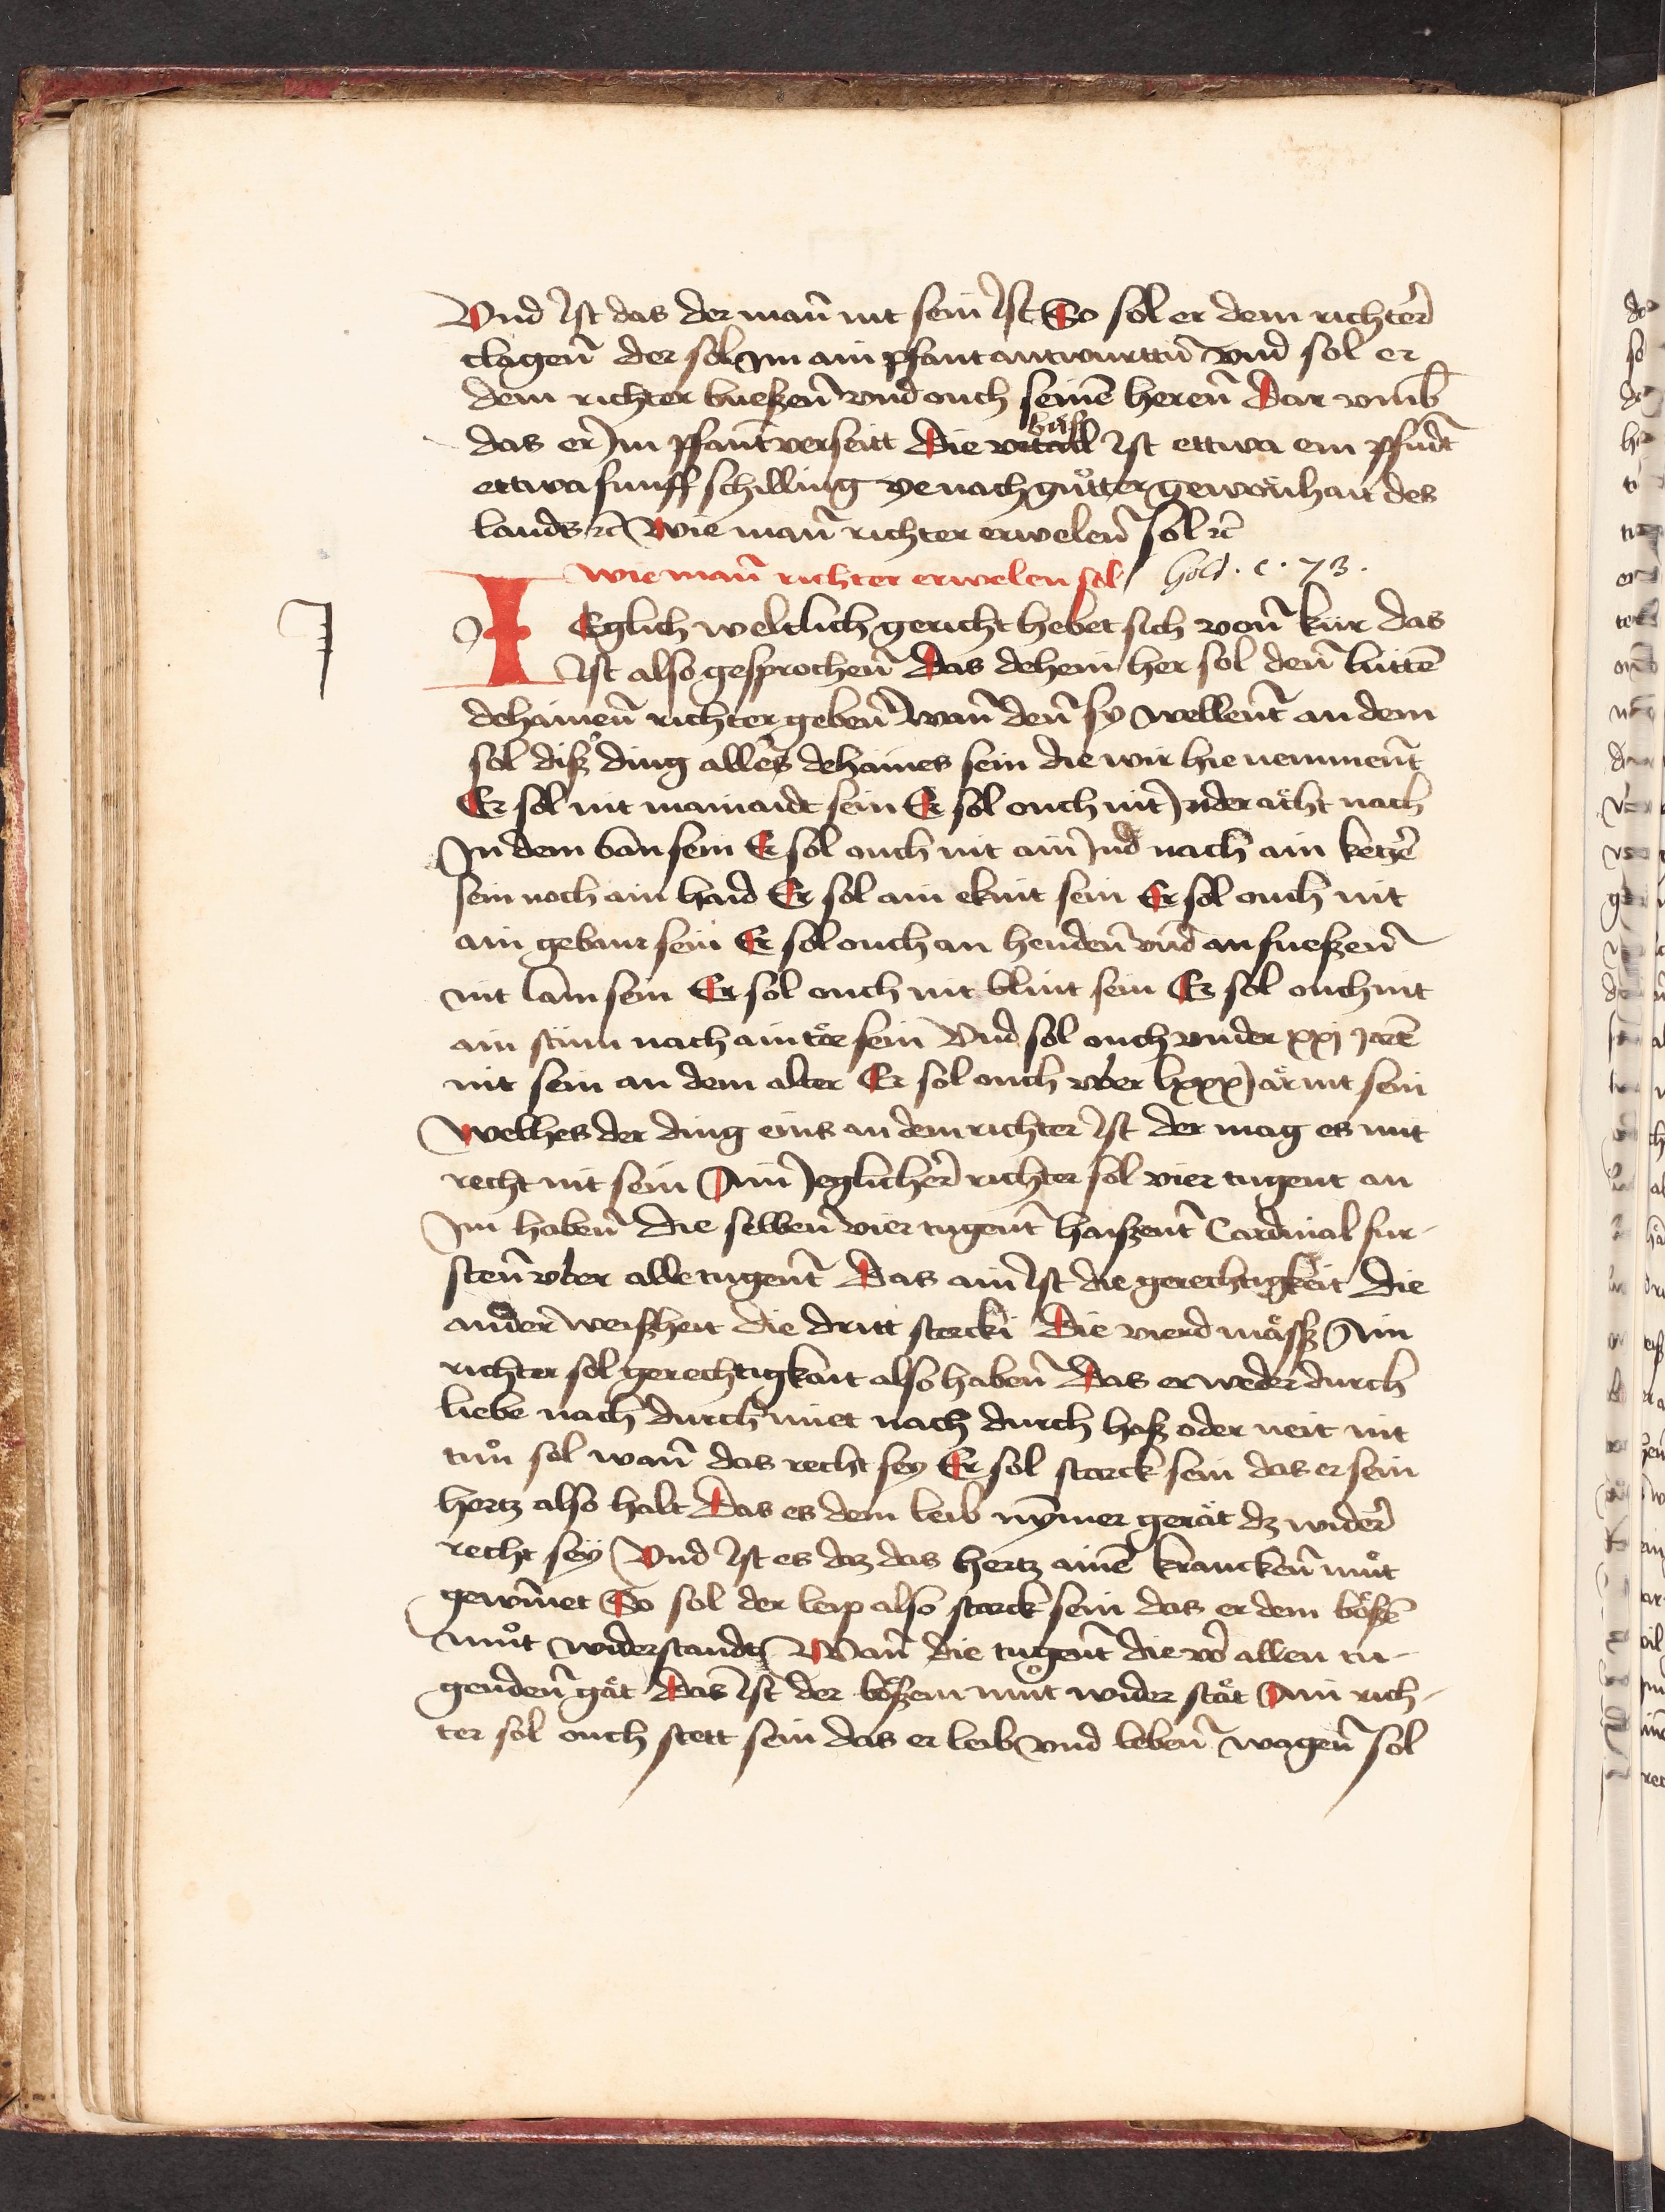 Vnd Ist das der man̄ nit sein Ist So sol er dem richter̄
clagen̄ der sol Im ain pfant antwurttn̄ vnd sol er
dem richter bueßen̄ vnd ouch seinē heren̄ Dar vmb
das er Im pfant̄ verseitt Die vrtail buͦß Ist ettwa ein pfundt
ettwa funff schilling ye nach guͦtter gewonhait des
lands ⁊c̄ Wie man̄ richter erwelen̄ sol ⁊c̄
wie man̄ richter erwelen sol Gold. c. 73.
I Eglich weltlich gericht hebet sich von̄ kür das
Ist also gesprochen̄ Das dehein her sol den̄ luttē
dehainen̄ richter geben̄ wan̄ den̄ sy wellent̄ an dem
sol diß ding alles dehaines sein die wir hie nemment̄
Er sol nit mainaidt sein Er sol ouch nit In der ächt nach
In dem ban sein Er sol ouch nit ain Jud nach ain ketzē
sein noch ain haid Er sol ain ekint sein Er sol ouch nit
ain gebaur sein Er sol ouch an henden̄ vnd an fueßen̄
nit lam sein Er sol ouch nit blint sein Er sol ouch nit
ain stum nach ain tor sein Vnd sol ouch vnder xxj jarē
nit sein an dem alter Er sol ouch vber lxxx Jär nit sein
Welhes der ding eins an dem richter Ist der mag es mit
recht nit sein Ain Jeglicher̄ richter sol vier tugent an
Im haben̄ die selben̄ vier tugent̄ haißent̄ Cardinal fur-
sten̄ vber alle tugent̄ Das ain Ist die gerechtigkeit die
ander̄ weißheit die dritt stercki Die vierd mäß Ain
richter sol gerechtigkait also haben̄ Das er weder durch
liebe nach durch miet nach durch haß oder neit nit
tuͦn sol wan̄ das recht sey Er sol starck sein das er sein
hertz also halt Das es dem leib nȳmer gerät dz wider̄
recht sey Vnd Ist es daz das hertz ainē krancken̄ muͦt
gewin̄et So sol der leip also starck sein das er dem bößē
muͦt widerstandt Wan̄ die tugent̄ die vor allen tu-
genden̄ gät Das Ist der bößem muͦt wider stät Ain rich-
ter sol ouch stett sein das er leib vnd leben̄ wagen̄ sol